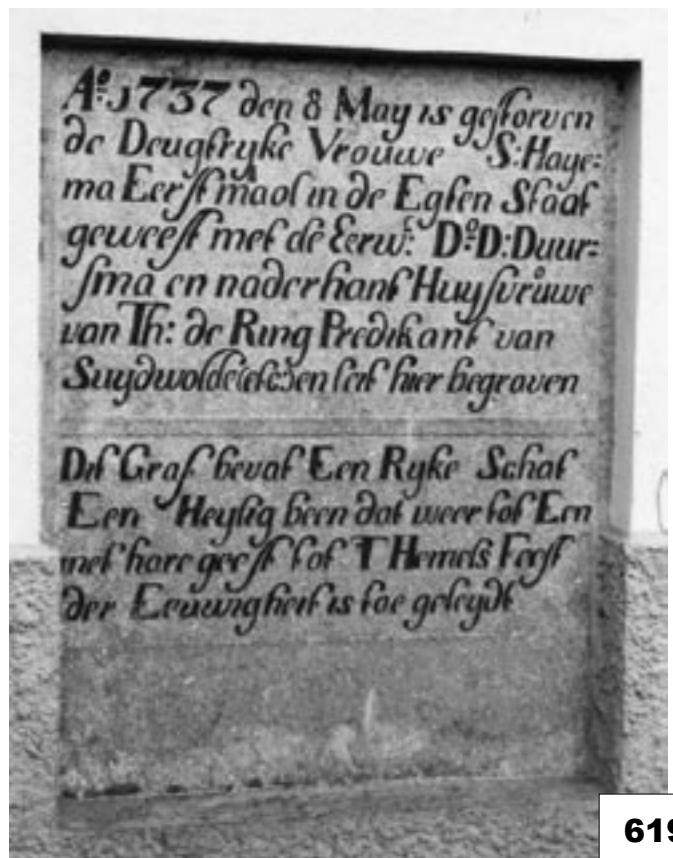 Aº: 1737 den 8 May is gestorven
de Deugtryke Vrouwe S: Haye=
ma Eerstmaol in de Egten Staat
geweest met de Eerw: Dº D: Duur=
sma en naderhant Huysvrůwe
van Th: de Ring Predikant van
Suydwolde (etc:) en leit hier begraven
Dit Graf bevat Een Ryke Schat
Een Heylig been dat weer tot Een
met hare geest tot T Hemels Feest
der Eeuwigheit is toe geleydt
619